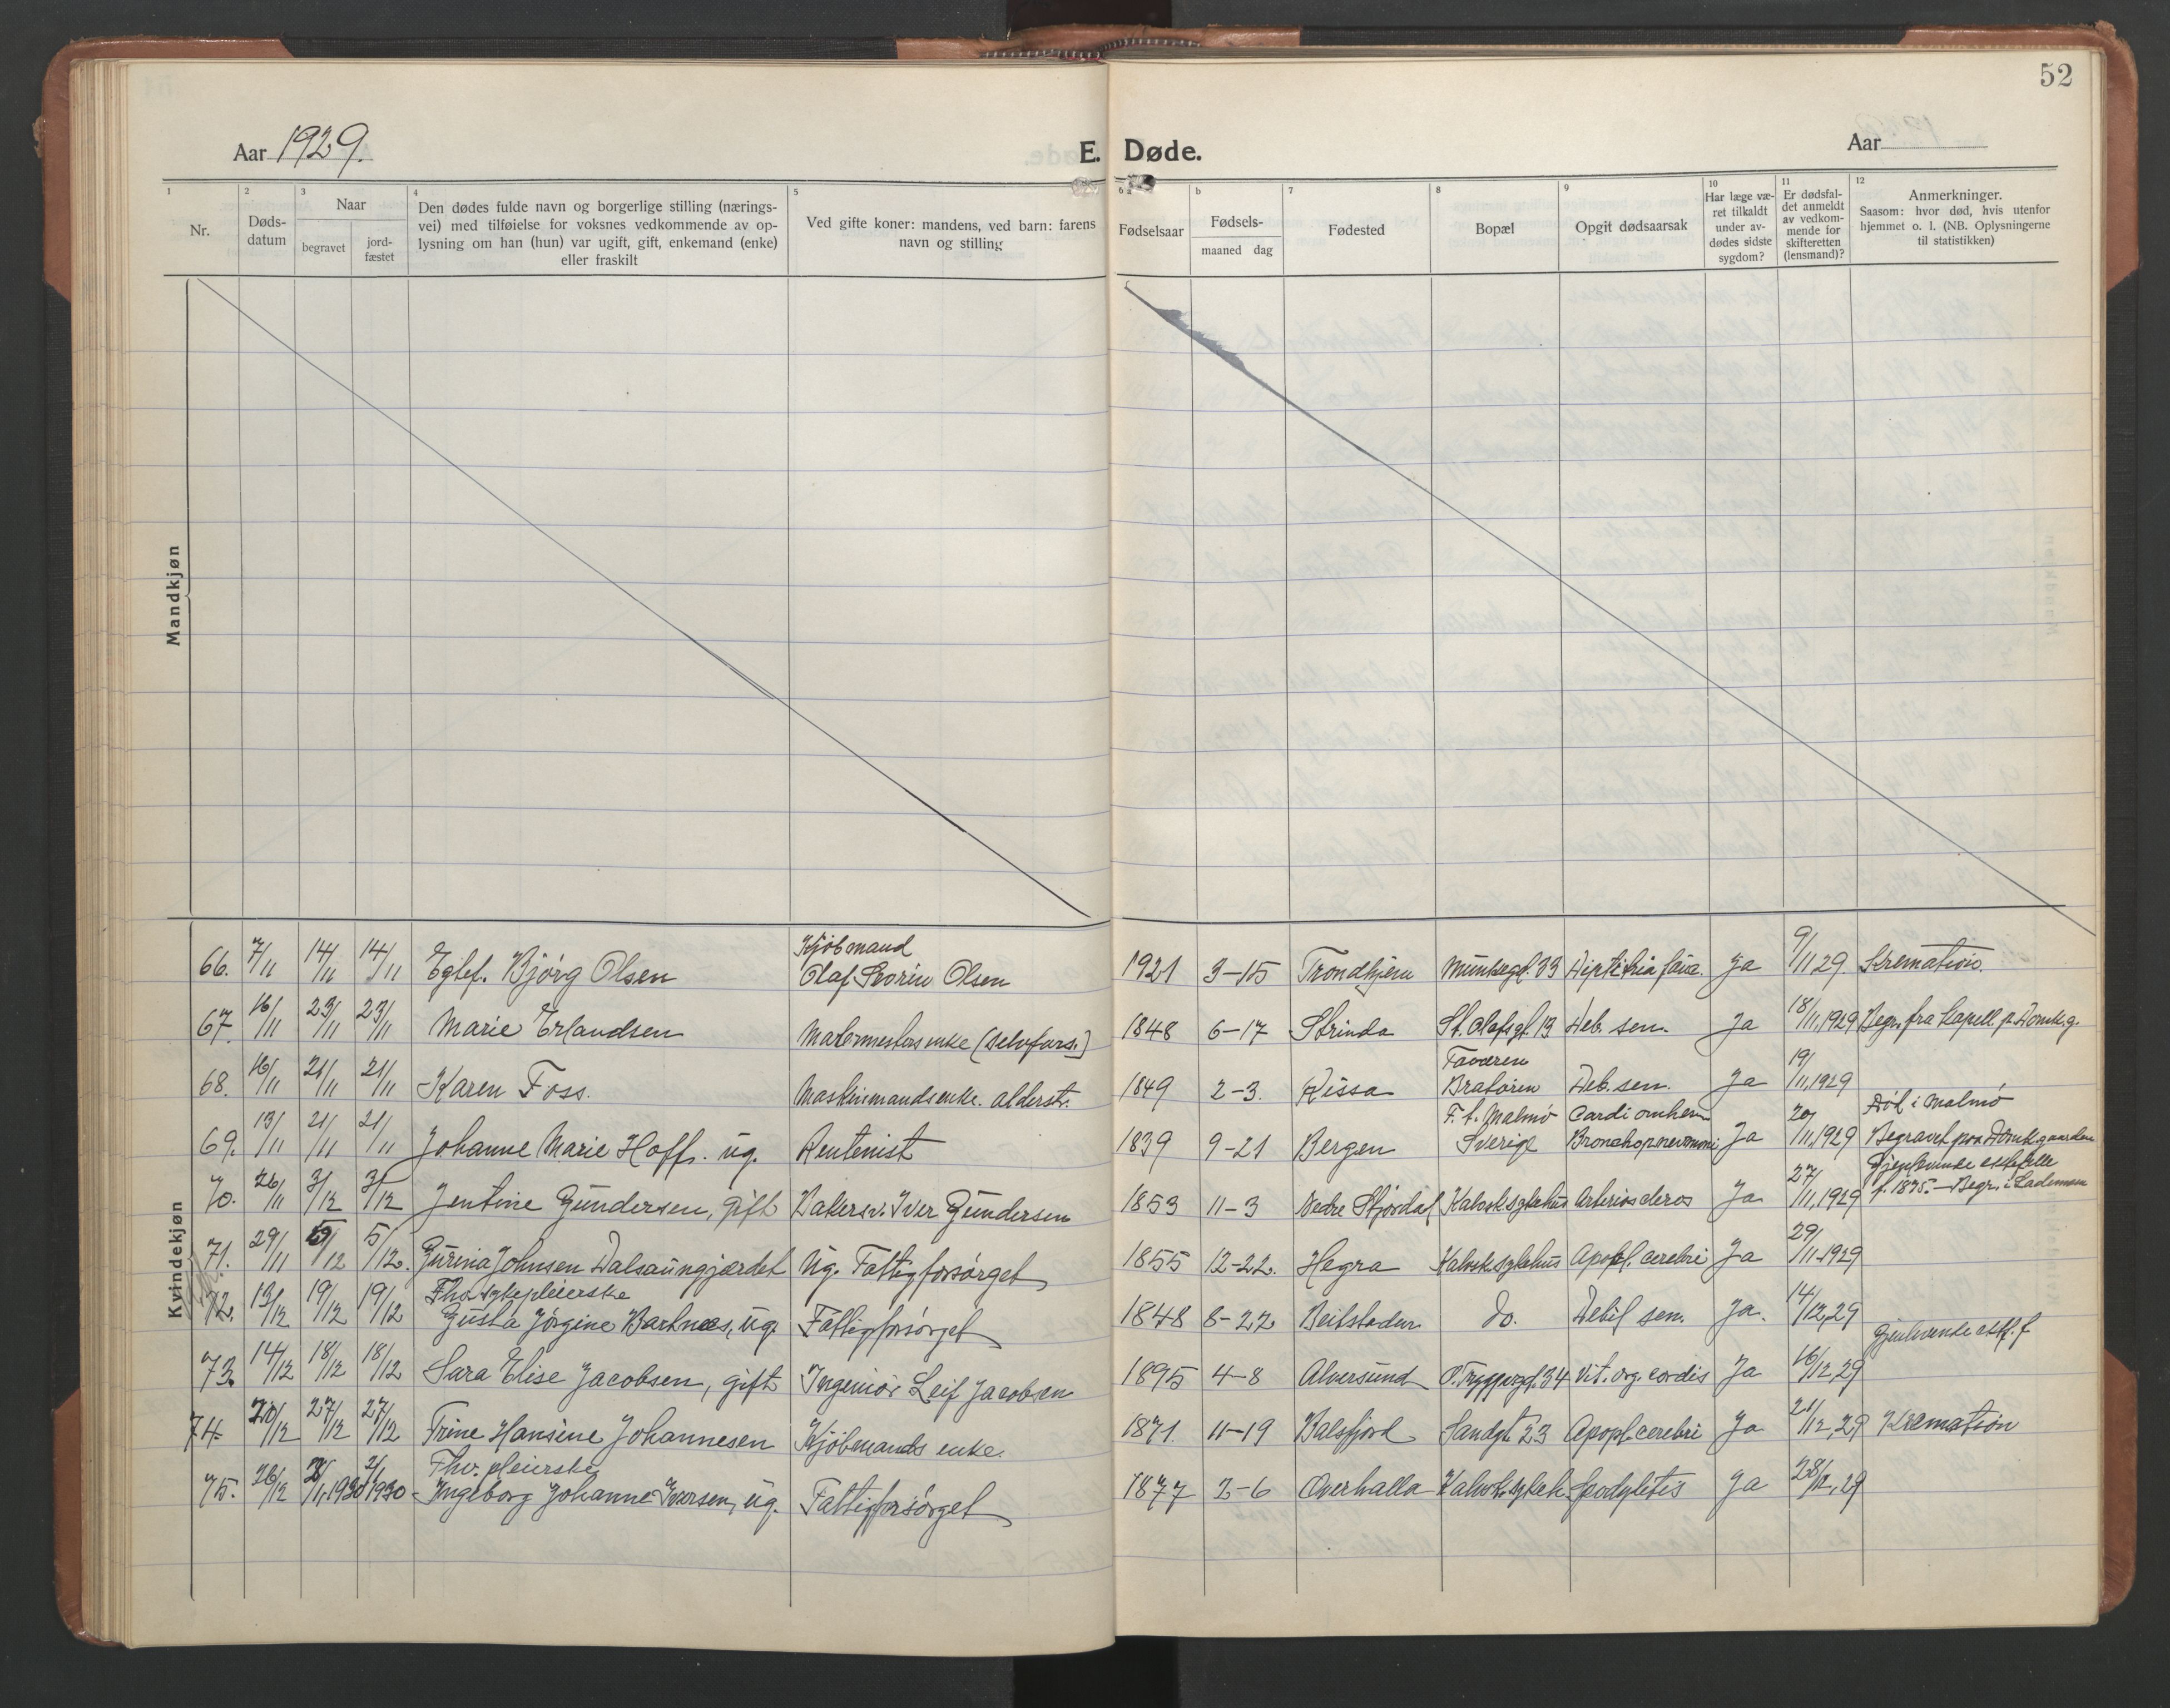 52
Aar 1929.
E. Døde.
Aar
1
2
3
4
5
6 a
b
7
8
9
10
11
12
Nr.
Døds-
datum
Naar
begravet
jord-
fæstet
Den dødes fulde navn og borgerlige stilling (nærings-
vei) med tilføielse for voksnes vedkommende av op-
lysning om han (hun) var ugift, gift, enkemand (enke)
eller fraskilt
Ved gifte koner: mandens, ved barn: farens
navn og stilling
Fødselsaar
Fødsels-
maaned dag
Fødested
Bopæl
Opgit dødsaarsak
Har læge væ-
ret tilkaldt
under av-
dødes sidste
sygdom?
Er dødsfal-
det anmeldt
av vedkom-
mende for
skifteretten
(lensmand)?
Anmerkninger.
Saasom: hvor død, hvis utenfor
hjemmet o. l. (NB. Oplysningerne
til statistikken)
Mandkjøn
Kvindekjøn
66. 7/11 14/11 14/11 Egtef. Bjørg Olsen Kjøbmand Olaf Sverin Olsen 1921 3-15 Trondhjem Munkegt. 33 Ja 9/11 29. Kremation.
67. 16/11 23/11 23/11 Marie Erlandsen 1848 6-17 Strinda St. Olafsgt 13 Deb. sen. Ja 18/11,1929 Begr. fra Kapell. p. Domk.g.
68. 16/11 21/11 21/11 Karen Foss. Maskinmandsenke. alderstr. 1849 2-3. Rissa Bratøren Deb. sen. Ja 19/11,1929
69. 13/11 21/11 21/11 Johanne Marie Hoff. ug. Rentenist 1839 9-21 Bergen F. t. Malmö Sverige Bronchopneumoni Ja 20/11,1929 Död i Malmö Begravet paa Domk.gaarden
70. 26/11 3/12 3/12 Jentine Gundersen, gift Bakersv. Iver Gundersen 1853 11-3 Nedre Stjørdal Kalvsk.sykehus Arterioscleros Ja 27/11,1929 Gjenlevende ektefælle f. 1875. - Begr. i Lademoen
71. 29/11 5/12 5/12. Gurina Johnsen Dalsaungjærdet Ug. Fattigforsørget 1855 12-22. Hegra Kalvsk.sykehus Apopl. cerebri Ja 29/11.1929
72. 13/12 19/12 19/12 Fhv. sykepleierske Gusta Jørgine Bartnæs, ug. Fattigforsørget 1848 8-22 Beitstaden do. Debil sen. Ja. 14/12,29
73. 14/12 18/12 18/12 Sara Elise Jacobsen, gift Ingeniør Leif Jacobsen 1895 4-8 Alversund O. Tryggvasgt. 34 Vit. org. cordis Ja 16/12,29 Gjenlevende ektf. f
74. 20/12 27/12 27/12 Trine Hansine Johannesen Kjøbmands enke. 1871. 11-19 Balsfjord Sandgt. 23 Apopl. cerebri Ja 21/12,29 Kremation
75. 26/12 2/1,1930 2/1 1930 Fhv. pleierske Ingeborg Johanne Iversen, ug. Fattigforsørget 1877 2-6 Overhalla Kalvsk.sykeh. Ja 28/12,29